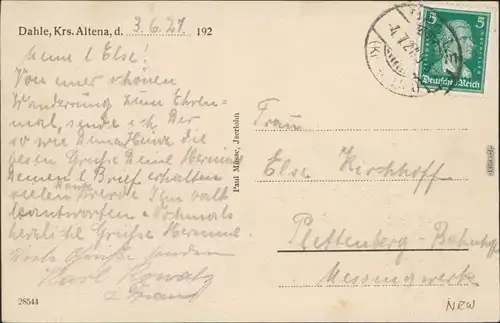 Dahle, Krs. Altena, d. 3.6.27 192
Meine l Else!
Von einer schönen
Wanderung zum Ehren-
mal, sende ich Dir
so wie Deinem die
besten Grüße Deine Hermine
Deinen l Brief erhalten
vielen Dank werde ihn bald
beantworten. Nochmals
herzliche Grüße Hermine.
Viele Grüße senden
Karl
u Frau
28544
Paul Müsse, Iserlohn
5 5
Deutsches Reich
Frau
Else Kirchhoff
Plettenberg-Bahnhof
Messingwerk
NRW